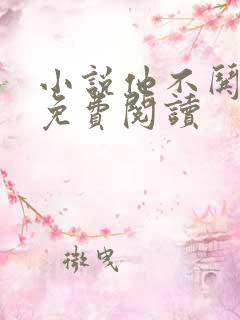 小說他不關
免費閱讀
微曳